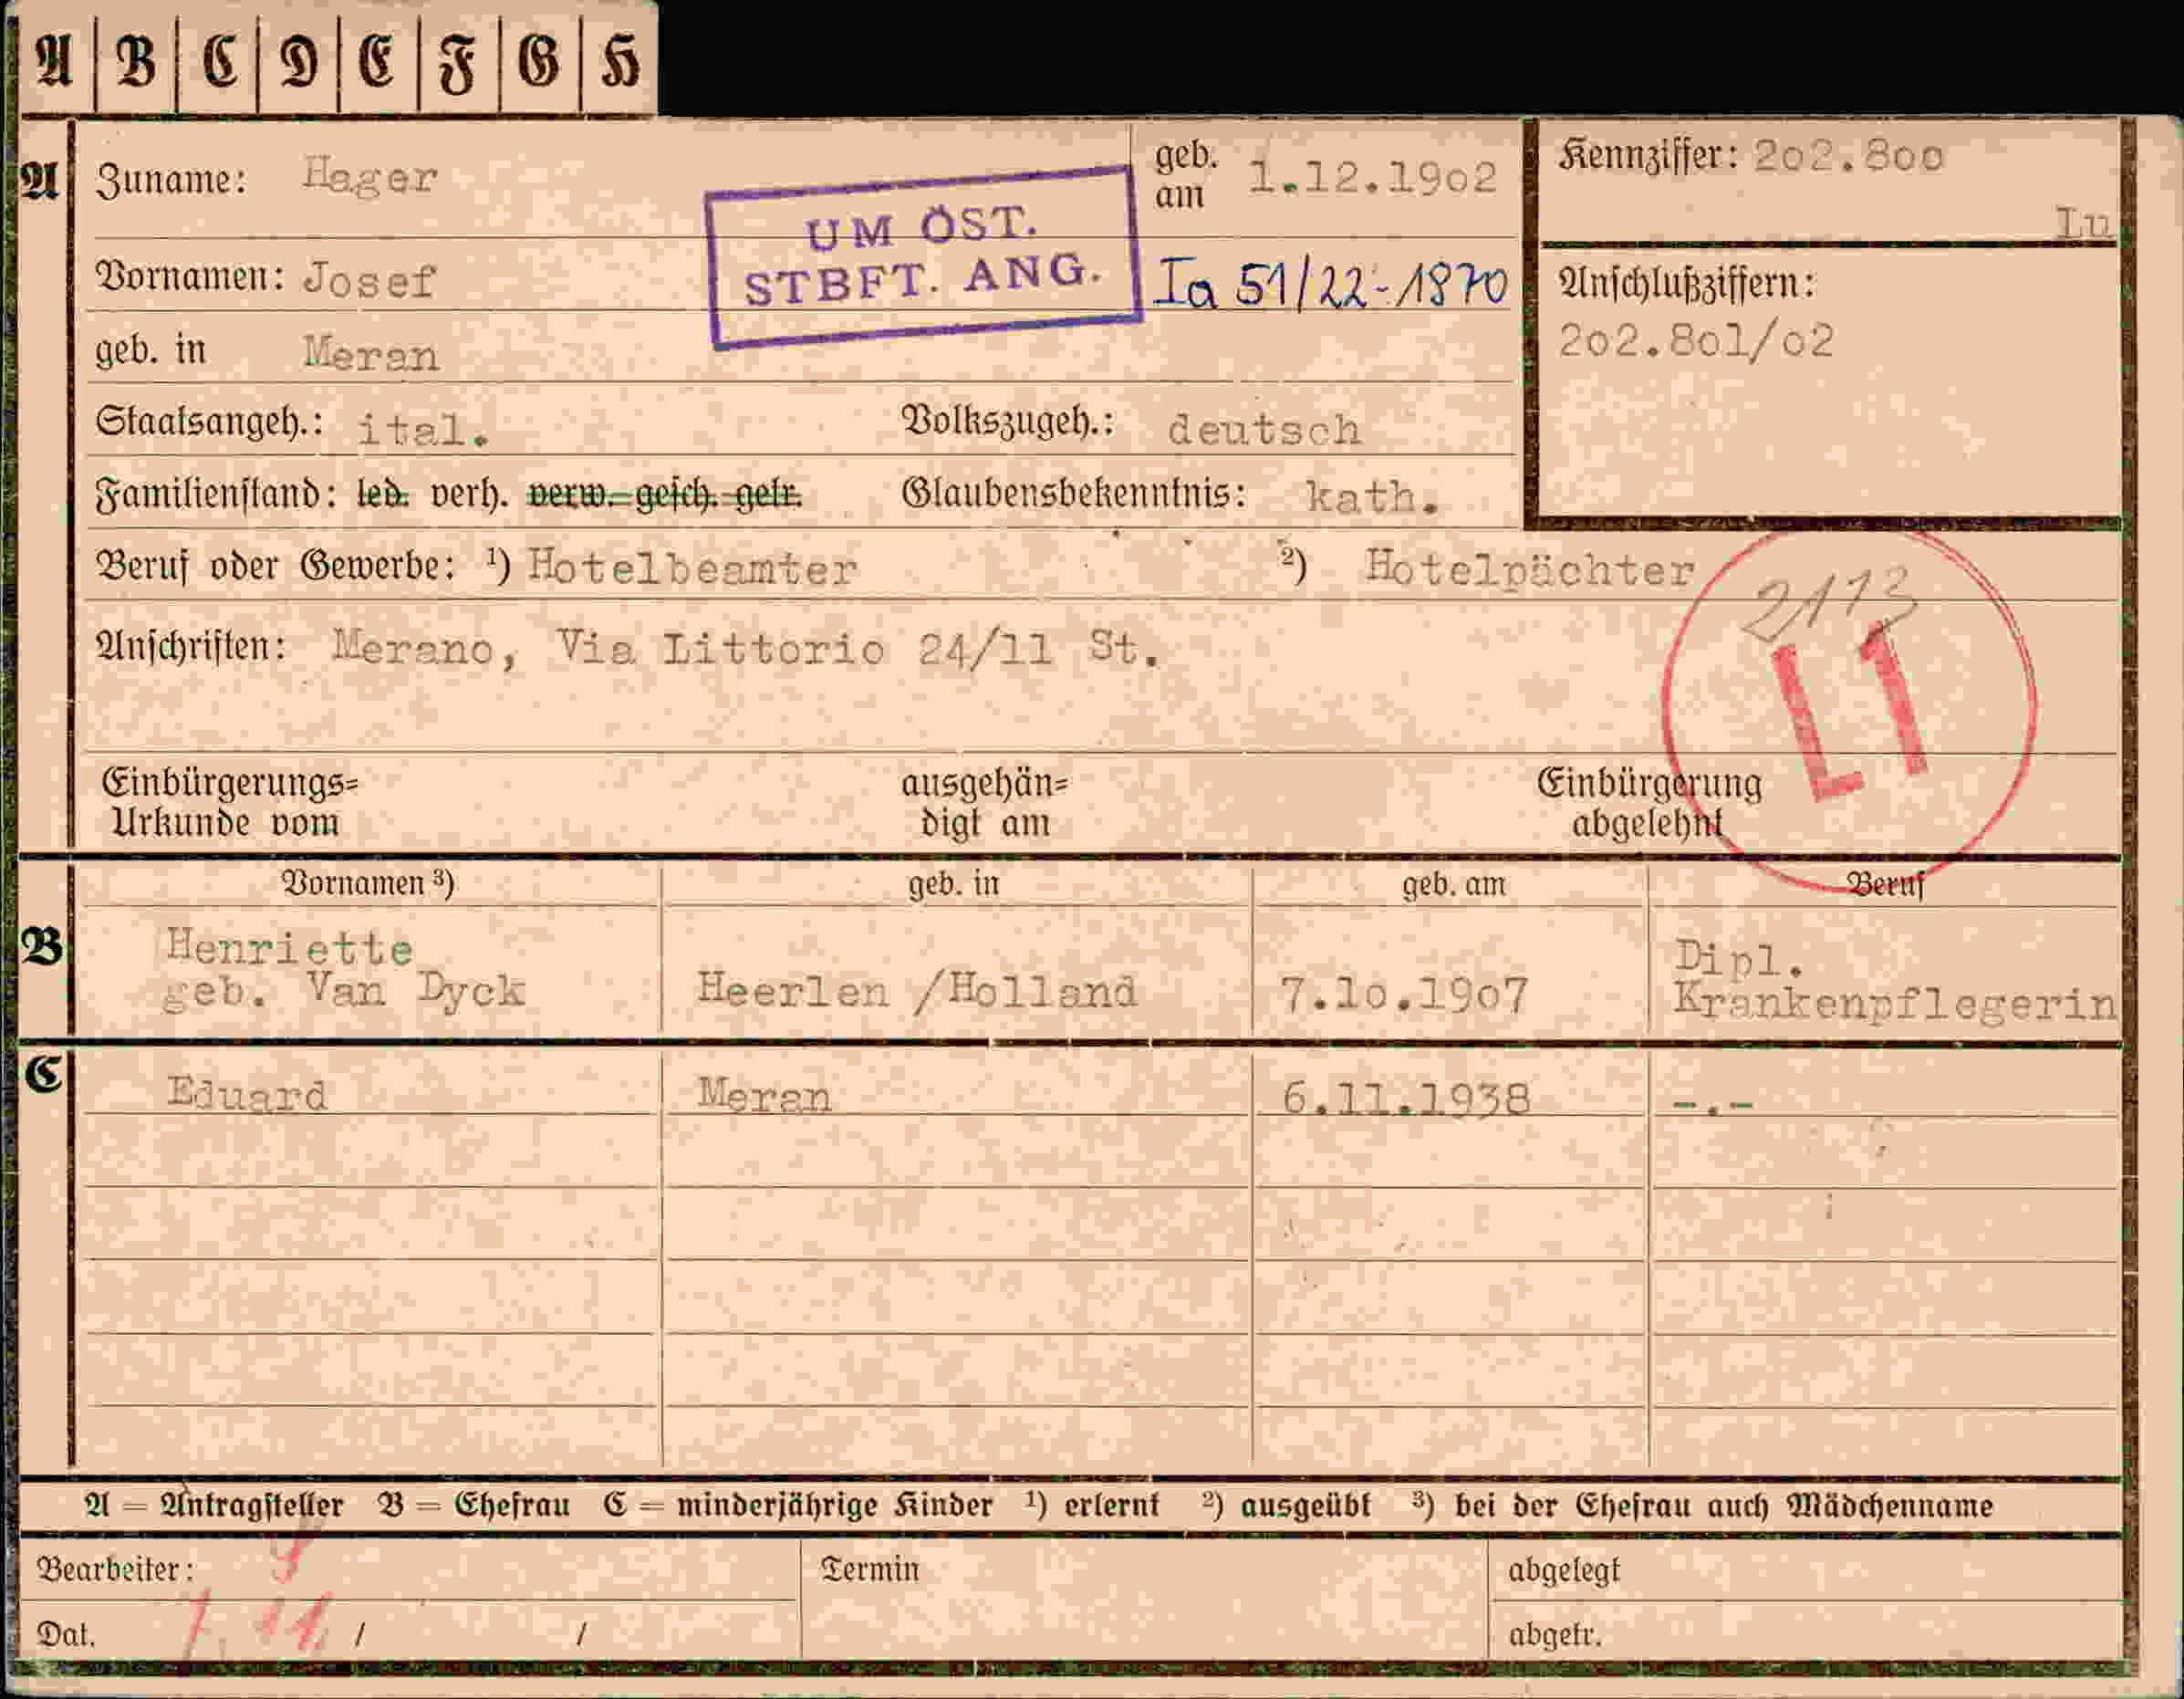 A B C D E F G H
A Zuname: Hager geb. am 1.12.1902 Kennziffer: 202.800
Lu
UM ÖST.
STBFT. ANG.
Vornamen: Josef Ia 51/22-1870 Anschlußziffern:
202.801/02
geb. in Meran
Staatsangeh.: ital. Volkszugeh.: deutsch
Familienstand: led. verh. verw. gesch. getr. Glaubensbekenntnis: kath.
Beruf oder Gewerbe: ¹) Hotelbeamter ²) Hotelpächter
2113
L1
Anschriften: Merano, Via Littorio 24/11 St.
Einbürgerungs= ausgehän= Einbürgerung
Urkunde vom digt am abgelehnt
Vornamen ³) geb. in geb. am Beruf
B Henriette Dipl.
geb. Van Dyck Heerlen /Holland 7.10.1907 Krankenpflegerin
C Eduard Meran 6.11.1938 -.-
A = Antragsteller B = Ehefrau C = minderjährige Kinder ¹) erlernt ²) ausgeübt ³) bei der Ehefrau auch Mädchenname
Bearbeiter: Termin abgelegt
Dat. / / abgetr.